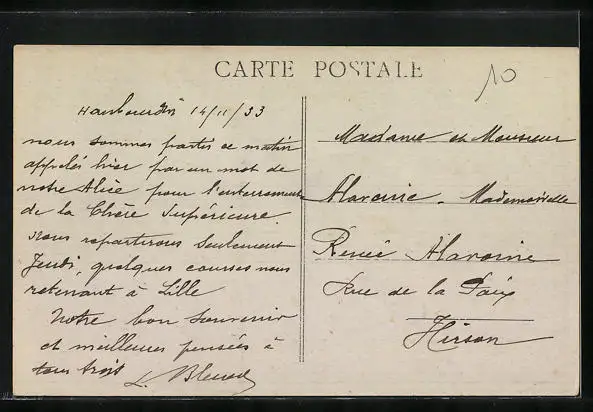 CARTE POSTALE
10
Haubourdin 14/11/33
nous sommes partis ce matin
appelés hier par un mot de
notre Alice pour l'enterrement
de la Chère Supérieure.
nous repartirons seulement
Jeudi, quelques courses nous
retenant à Lille
Notre bon souvenir
et meilleures pensées à
tous trois
L.
Madame et Monsieur
Alavoine. Mademoiselle
Renée Alavoine
Rue de la Paix
Hirson